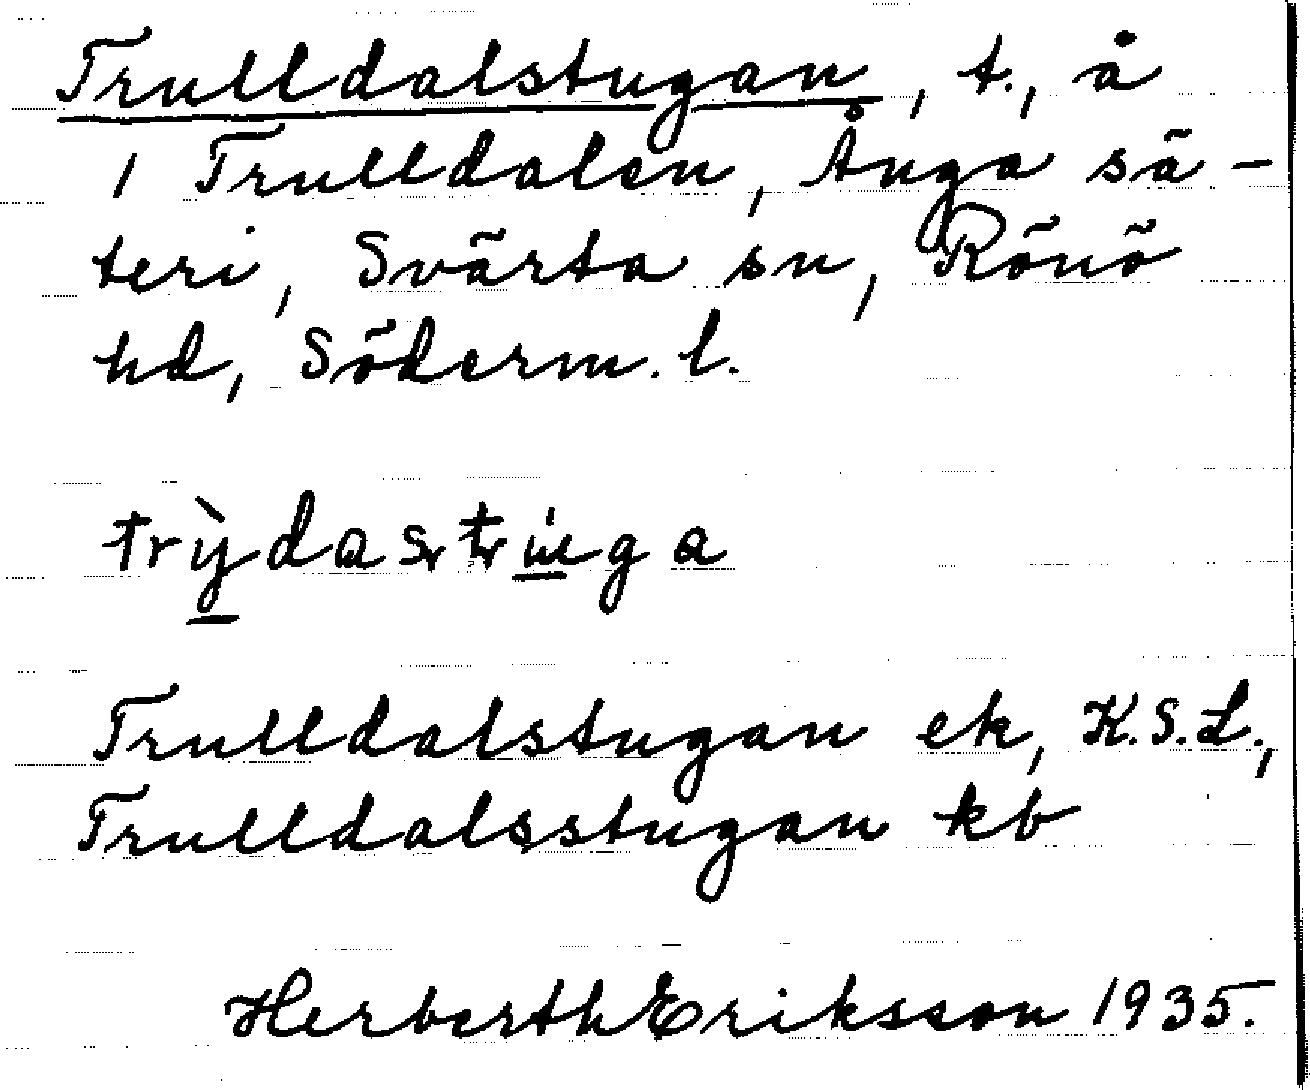 Trulldalstugan, t., å
1 Trulldalen, Ånga sä-
teri, Svärta sn, Rönö
hd, Söderm. l.
Trulldalstugan ek, K.S.L.,
Trulldalsstugan kb
Herberth Eriksson 1935.